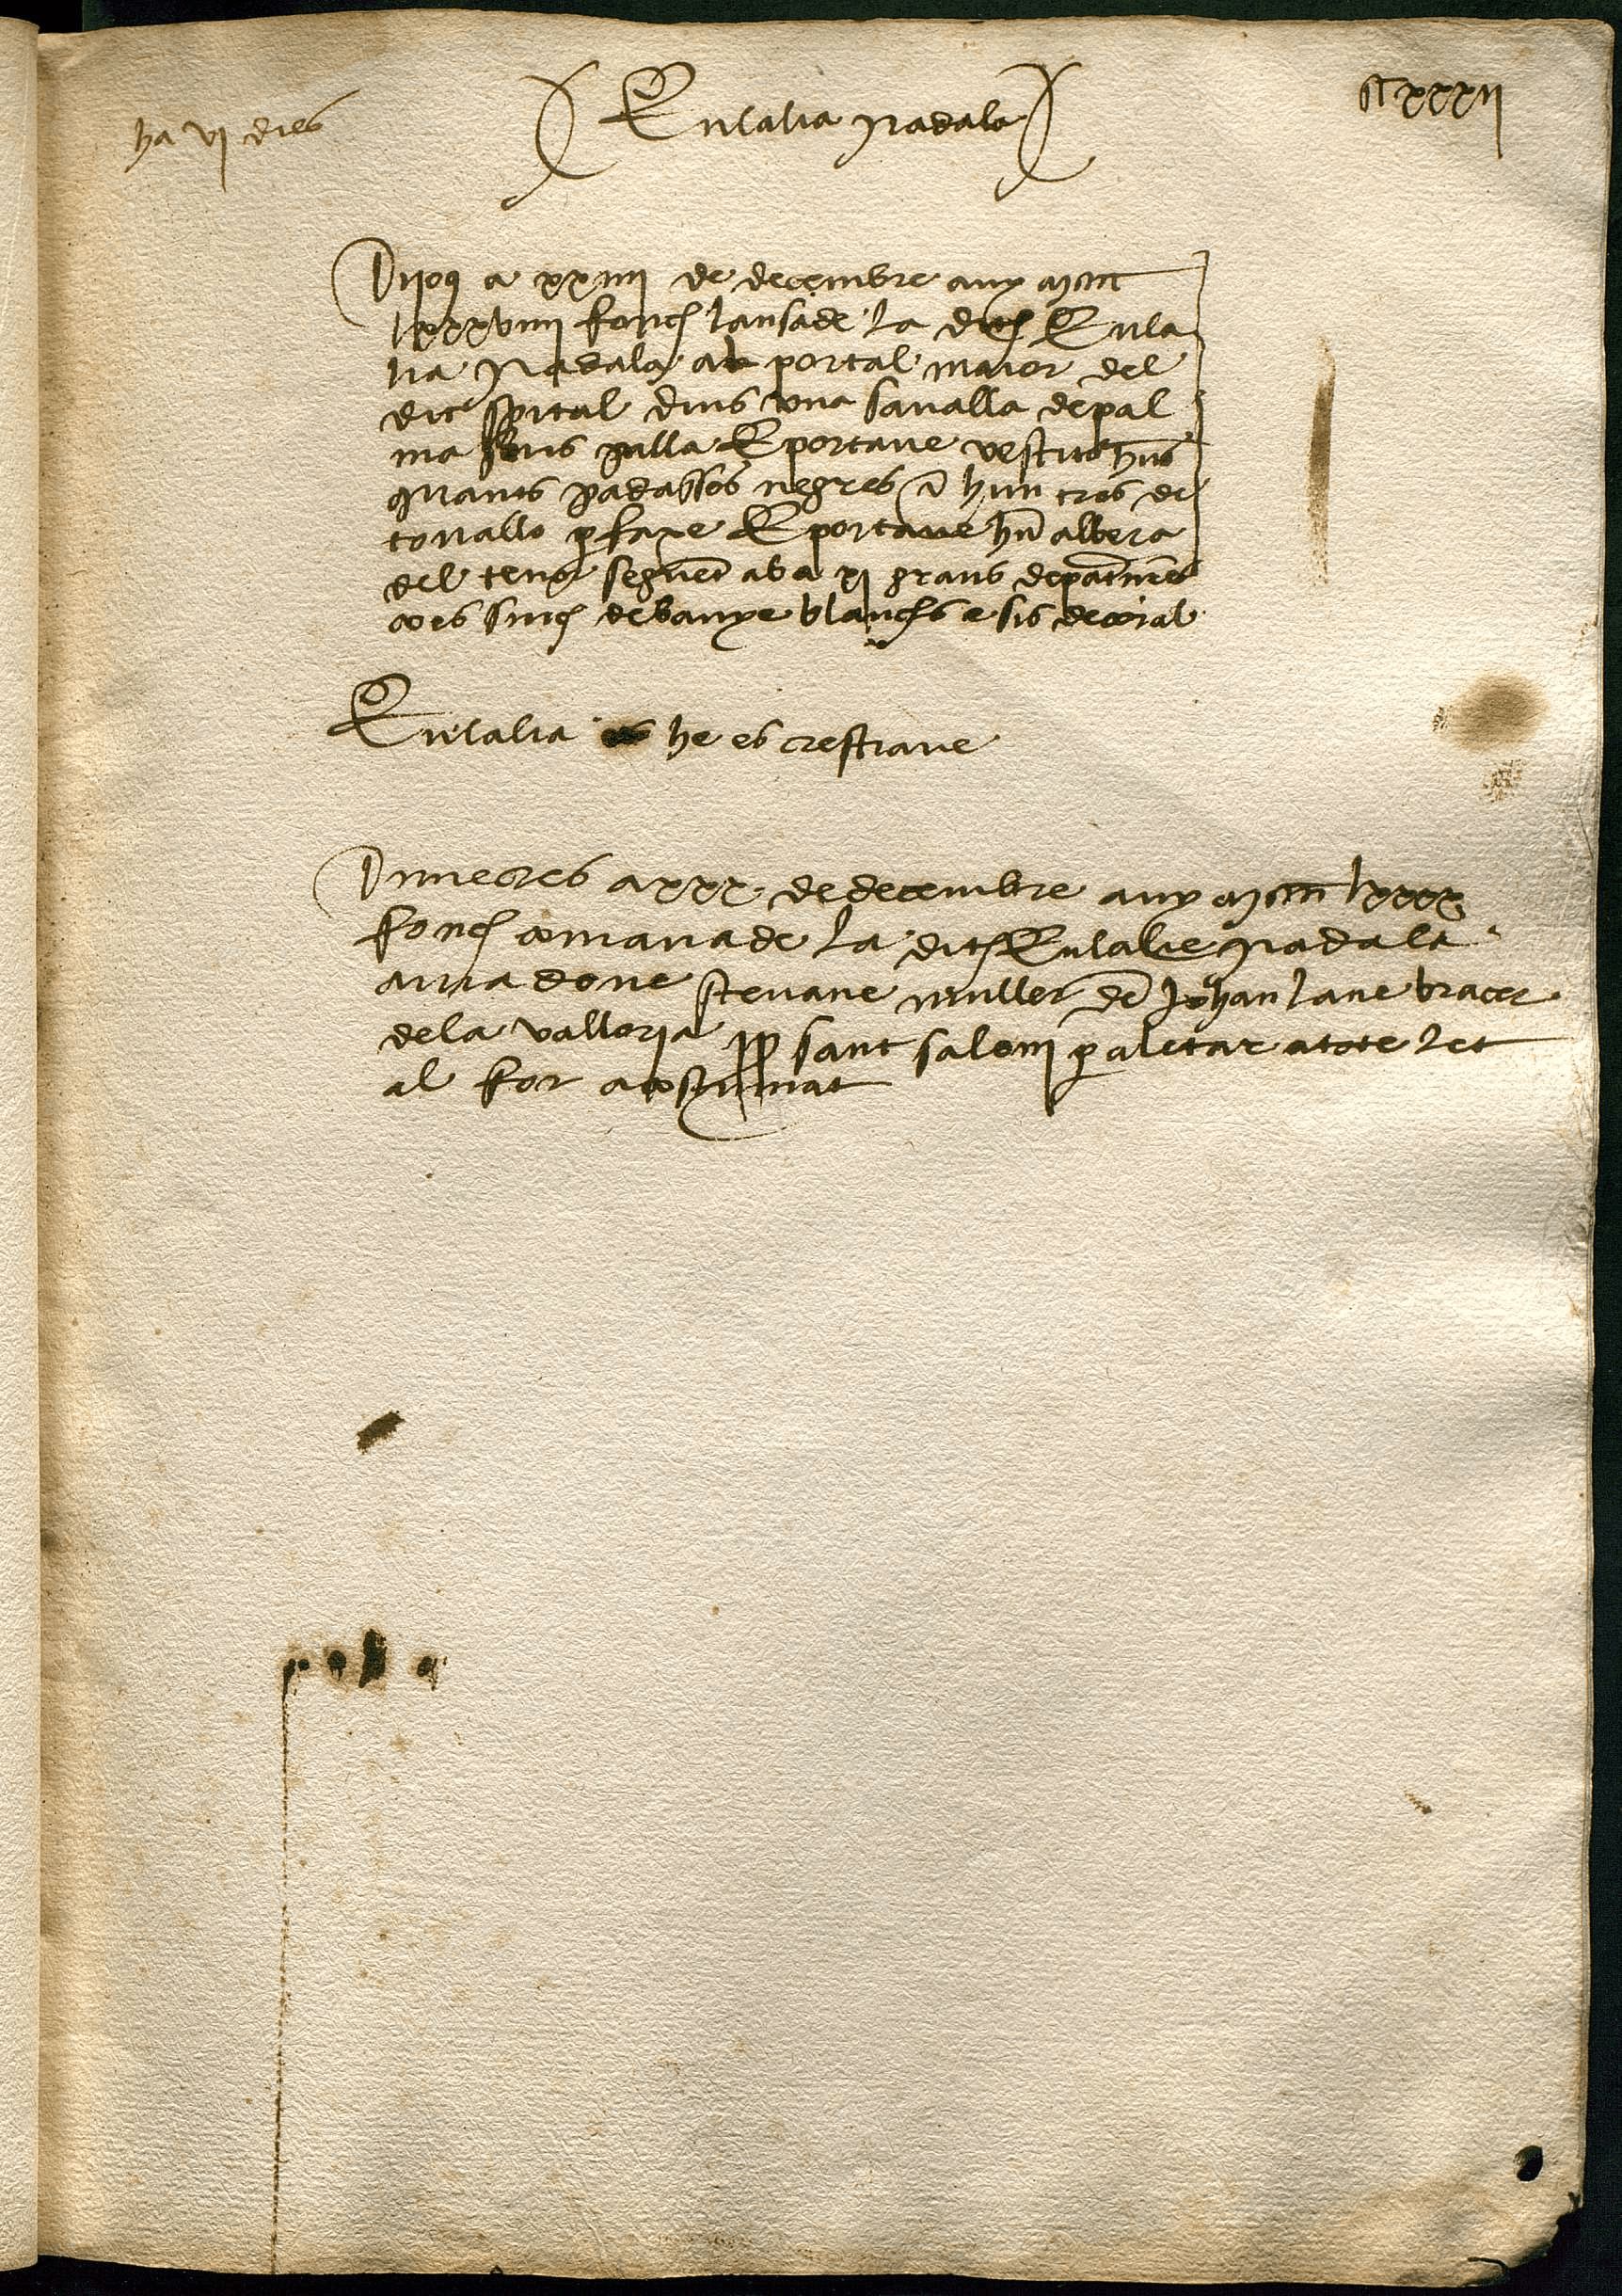 ha vj dies
Eulalia Nadala
CXXXII
Dijos a xxiiii de decembre any mcccc
lxxxviiii fonch lansade la dita Eula
lia Nadala al portal maior del
dit spital dins una savalla de pal
ma sens palla E portave vestits huns
quants padassos negres e hun tros de
tovallo per faxe E portave hun albera
del tenor seguent ab a xi grans de patrnres
ço es sinch de banye blanchs e sis de coral
Eulalia he es crestiane
Dimecres a xxx de decembre any mcccc lxxxx
fonch comanade la dita Eulalie Nadala
a una done Stevane muller de Johan lane bracer
de la valloria sant saloni per aletar a tote let
al for acostumat